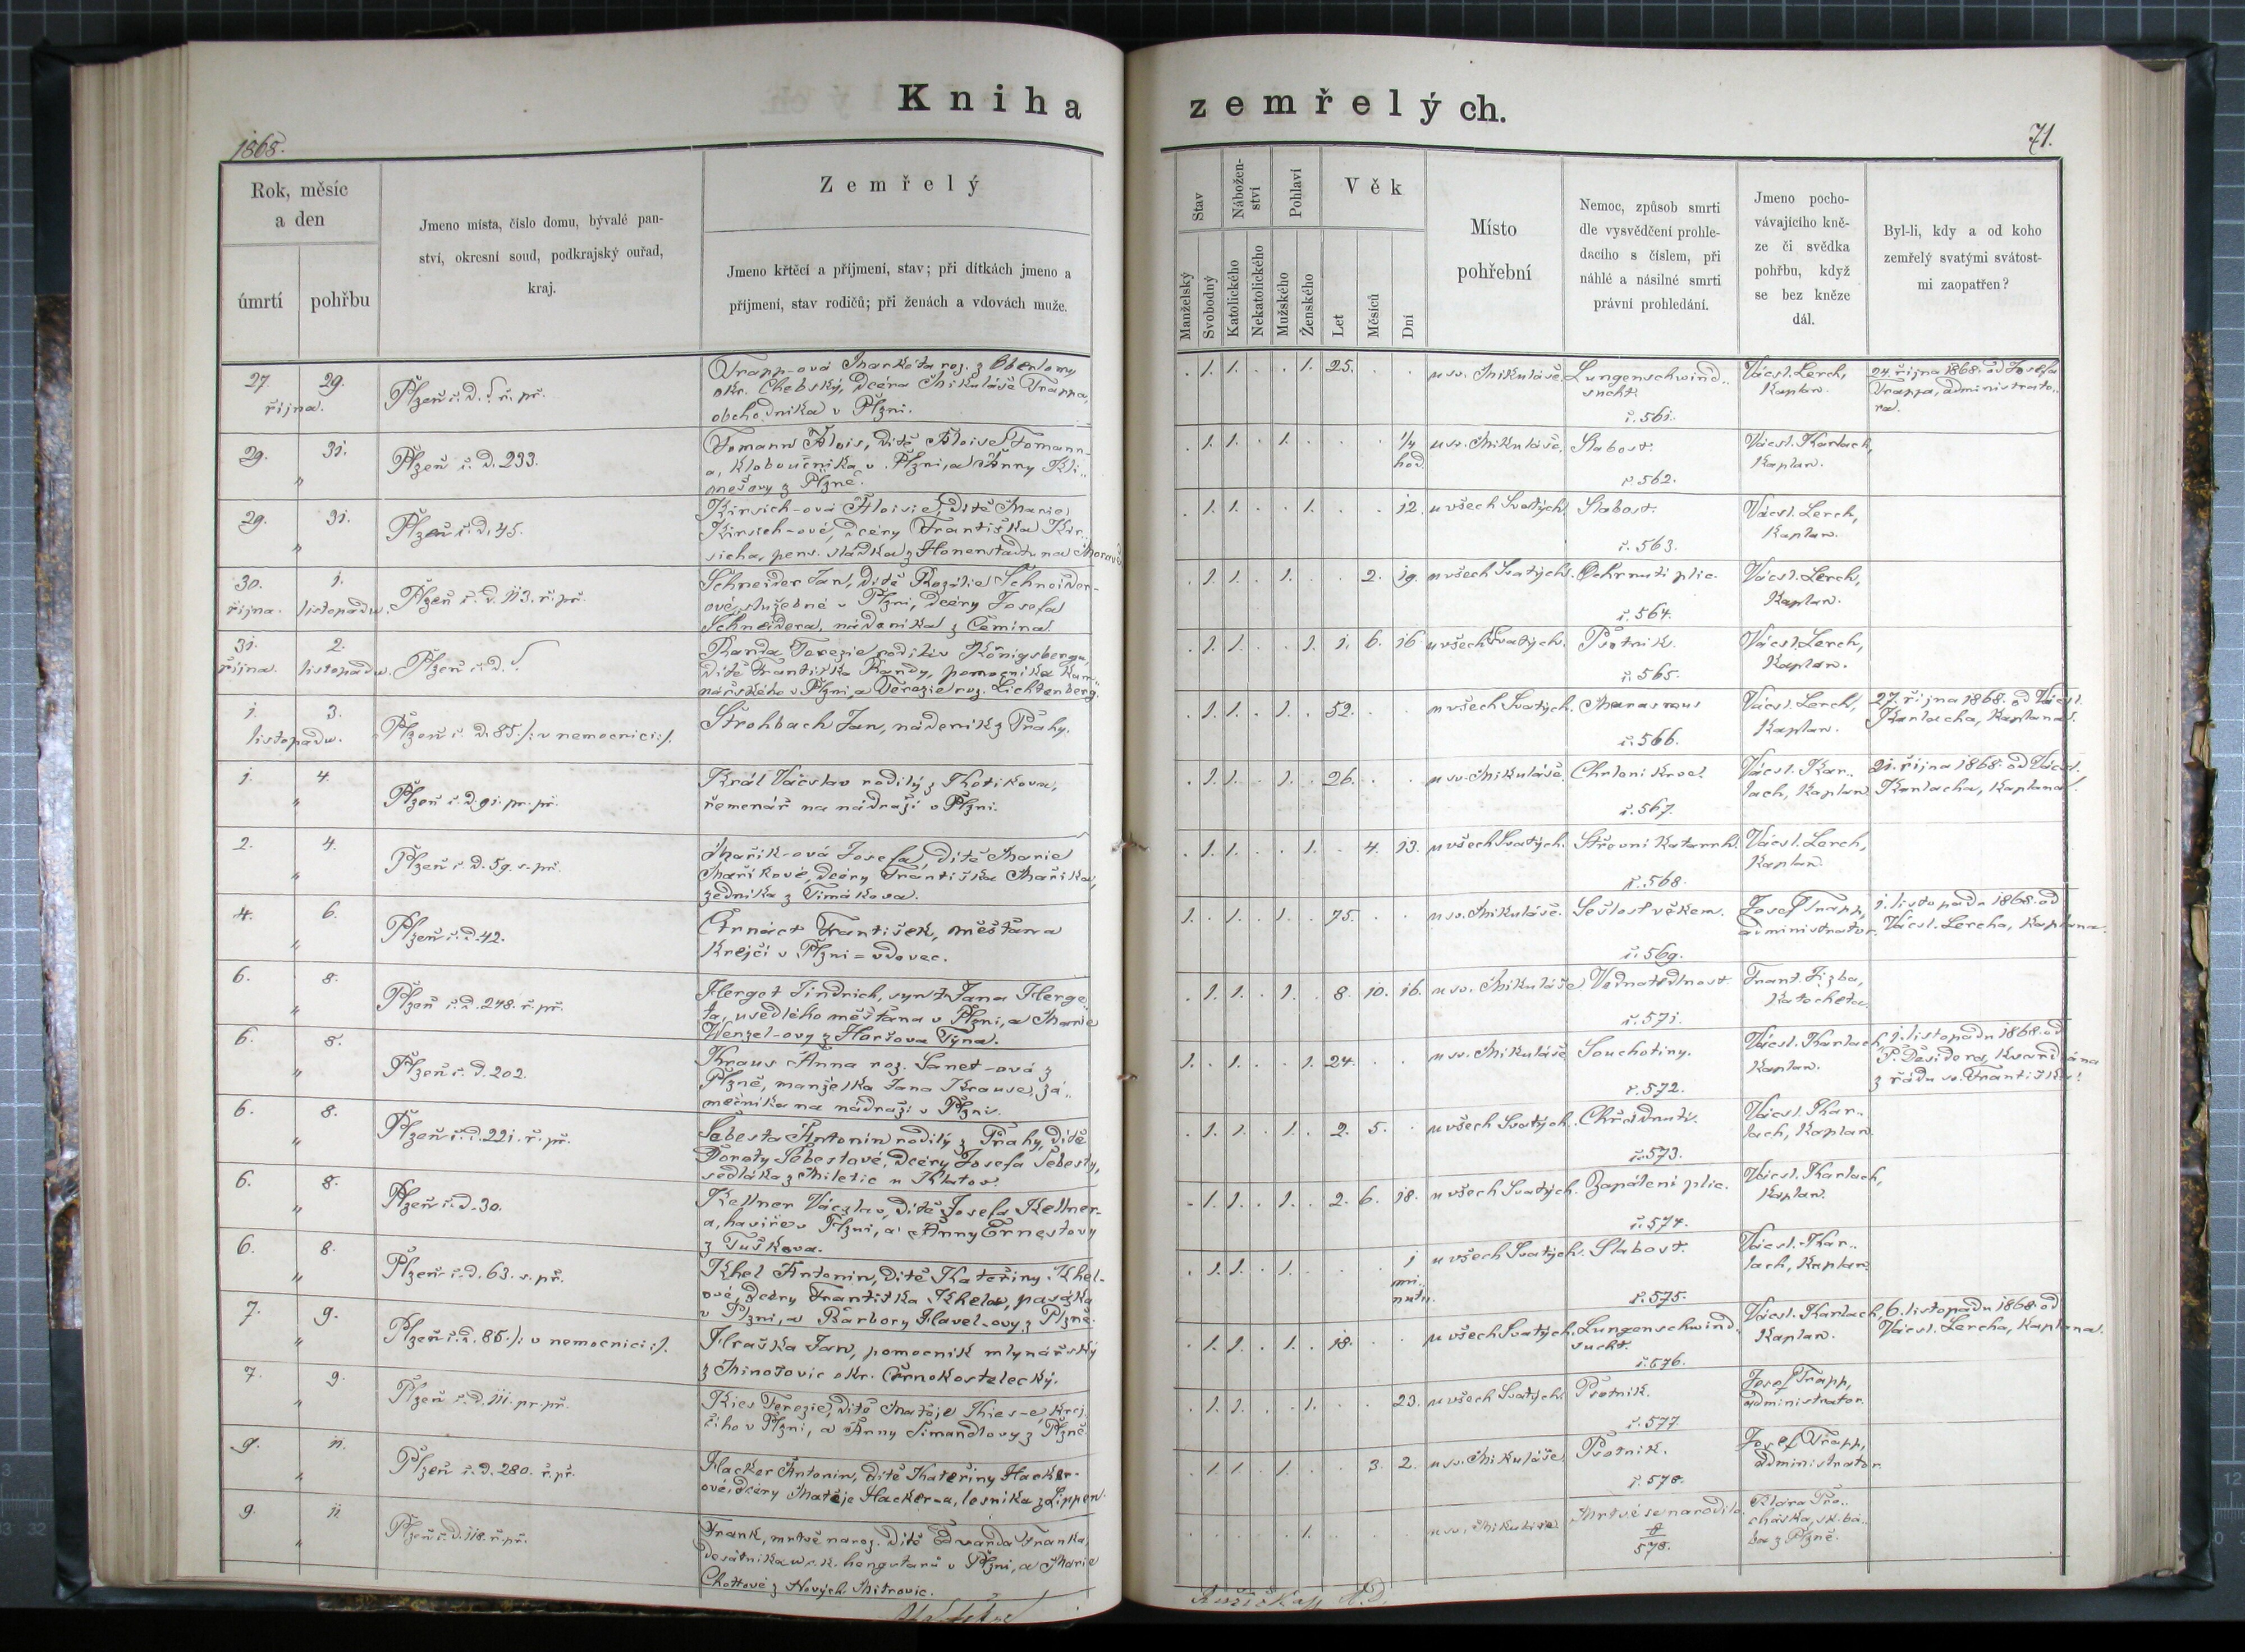 Kniha
zemřelých.
1868.
71.
Rok, měsíc
a den
úmrtí
pohřbu
Jmeno místa, číslo domu, bývalé pan-
ství, okresní soud, podkrajský ouřad,
kraj.
Zemřelý
Jmeno křtěcí a příjmení, stav; při dítkách jmeno a
příjmení, stav rodičů; při ženách a vdovách muže.
Stav
Manželský
Svobodný
Nábožen-
ství
Katolického
Nekatolického
Pohlaví
Mužského
Ženského
Věk
Let
Měsíců
Dní
Místo
pohřební
Nemoc, způsob smrti
dle vysvědčení prohle-
dacího s číslem, při
náhlé a násilné smrti
právní prohledání.
Jmeno pocho-
vávajícího kně-
ze či svědka
pohřbu, když
se bez kněze
dál.
Byl-li, kdy a od koho
zemřelý svatými svátost-
mi zaopatřen?
27. 29.
října.
Plzeň č. d. ř. př.
Trapp-ová Markéta roz. z
okr. Chebský, dcéra Mikuláše Trappa,
obchodníka v Plzni.
. 1. 1. . . 1. 25. . .
u sv. Mikuláše
Lungenschwind-
sucht
č. 561.
Václ. Lerch,
Kaplan.
24. října 1868. od Josefa
Trappa, administrato-
ra.
29. 31.
"
Plzeň č. d. 233.
Tomann Alois, dítě Aloise Tomann-
a, kloboučníka v Plzni, a Anny Kli-
mešovy z Plzně.
. 1. 1. . 1. . . . 1/4
hod.
u sv. Mikuláše.
Slabost.
č. 562.
Václ. Karlach,
Kaplan.
29. 31.
"
Plzeň č. d. 45.
Kirsich-ová Aloisie, dítě Marie
Kirsich-ové, dcéry Františka Kir-
sicha, pens. sládka z Honenstadtu na Moravě
. 1. 1. . . 1. . . 12.
u všech Svatých.
Slabost.
č. 563.
Václ. Lerch,
Kaplan.
30. 1.
října. listopadu.
Plzeň č. d. 113. ř. př.
Schneider Jan, dítě Rozálie Schneider-
ové, služebné v Plzni, dcéry Josefa
Schneidera, nádeníka z Čemína.
. 1. 1. . 1. . . 2. 19.
u všech Svatých.
Ochrnutí plic.
č. 564.
Václ. Lerch,
Kaplan.
31. 2.
října. listopadu.
Plzeň č. d.
Randa Terezie rodilá v Königsbergu,
dítě Františka Randy, pomocníka kam-
nářského v Plzni, a Terezie roz. Lichtenberg.
. 1. 1. . . 1. 1. 6. 16
u všech Svatých.
Psotník.
č. 565.
Václ. Lerch,
Kaplan.
1. 3.
listopadu.
Plzeň č. d. 85. /: v nemocnici :/.
Strohbach Jan, nádeník z Prahy.
. 1. 1. . 1. . 52. . .
u všech Svatých.
Marasmus
č. 566.
Václ. Lerch,
Kaplan.
27. října 1868. od Václ.
Karlacha, Kaplana.
1. 4.
"
Plzeň č. d. 91. pr. př.
Král Václav rodilý z Kotíkova,
řemenář na nádraží v Plzni.
. 1. 1. . 1. . 26. . .
u sv. Mikuláše.
Chrlení krve.
č. 567.
Václ. Kar-
lach, Kaplan.
21. října 1868. od Václ.
Karlacha, Kaplana.
2. 4.
"
Plzeň č. d. 59. s. př.
Mařík-ová Josefa, dítě Marie
Maříkové, dcéry Františka Maříka,
zedníka z Timákova.
. 1. 1. . . 1. . 4. 13.
u všech Svatých.
Střevní katarrh.
č. 568.
Václ. Lerch,
Kaplan.
4. 6.
"
Plzeň č. d. 42.
Čtrnáct František, měšťan a
krejčí v Plzni = vdovec.
1. . 1. . 1. . 75. . .
u sv. Mikuláše.
Sešlost věkem.
č. 569.
Josef Trapp,
administrator.
1. listopadu 1868. od
Václ. Lercha, Kaplana.
6. 8.
"
Plzeň č. d. 248. ř. př.
Herget Jindrich, syn Jana Herge-
ta, usedlého měšťana v Plzni, a Marie
Wenzel-ovy z Horšova Týna.
. 1. 1. . 1. . 8. 10. 16.
u sv. Mikuláše
Vodnatedlnost.
č. 571.
Frant. Zízba,
Katecheta.
6. 8.
"
Plzeň č. d. 202.
Kraus Anna roz. Sanet-ová z
Plzně, manželka Jana Krause, zá-
mečníka na nádraží v Plzni.
1. . 1. . . 1. 24. . .
u sv. Mikuláše
Souchotiny.
č. 572.
Václ. Karlach,
Kaplan.
1. listopadu 1868. od
P. Desidera, Kvardiána
z řádu sv. Františka.
6. 8.
"
Plzeň č. d. 221. ř. př.
Šebesta Antonín rodilý z Prahy, dítě
Doroty Šebestové, dcéry Josefa Šebesty,
sedláka z Miletic u Klatov.
. 1. 1. . 1. . 2. 5. .
u všech Svatých.
Chřadnutí.
č. 573.
Václ. Kar-
lach, Kaplan.
6. 8.
"
Plzeň č. d. 30.
Kellner Václav, dítě Josefa Kellner-
a, havíře v Plzni, a Anny Ernestovy
z Tuškova.
. 1. 1. . 1. . 2. 6. 18.
u všech Svatých.
Zapálení plic.
č. 574.
Václ. Karlach,
Kaplan.
6. 8.
"
Plzeň č. d. 63. s. př.
Khel Antonín, dítě Kateřiny Khel-
ové, dcéry Františka Khela, pasáka
v Plzni, a Barbory Havel-ovy z Plzně.
. 1. 1. . 1. . . . 1
mi-
nutu.
u všech Svatých.
Slabost.
č. 575.
Václ. Kar-
lach, Kaplan.
7. 9.
"
Plzeň č. d. 85. /: v nemocnici :/.
Hraška Jan, pomocník mlynářský
z okr. Černokostelecký.
. 1. 1. . 1. . 18. . .
u všech Svatých.
Lungenschwind-
sucht.
č. 576.
Václ. Karlach,
Kaplan.
6. listopadu 1868. od
Václ. Lercha, Kaplana.
7. 9.
"
Plzeň č. d. 111. pr. př.
Kies Terezie, dítě Matěje Kies-e, krej-
čího v Plzni, a Anny Šimandlovy z Plzně.
. 1. 1. . . 1. . . 23.
u všech Svatých
Psotník.
č. 577
Josef Trapp,
administrator.
9. 11.
"
Plzeň č. d. 280. ř. př.
Hacker Antonín, dítě Kateřiny Hacker-
ové, dcéry Matěje Hacker-a, lesníka z Lippen.
. 1. 1. . 1. . . 3. 2.
u sv. Mikuláše
Psotník.
č. 578.
Josef Trapp,
administrator
9. 11
"
Plzeň č. d. 118. ř. př.
Frank, mrtvě naroz. dítě Edvarda Franka,
desátníka u c. k. hengstarů v Plzni, a Marie
z Nových Mitrovic.
. . . . . 1. . . .
u sv. Mikuláše
Mrtvé se narodilo.
578.
Klára Pro-
cháska, zk. bá-
ba z Plzně.